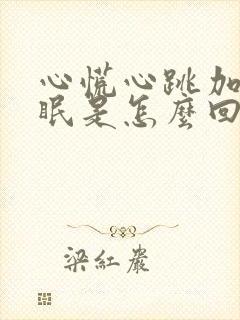 心慌心跳加
眠是怎麼回
梁紅巖